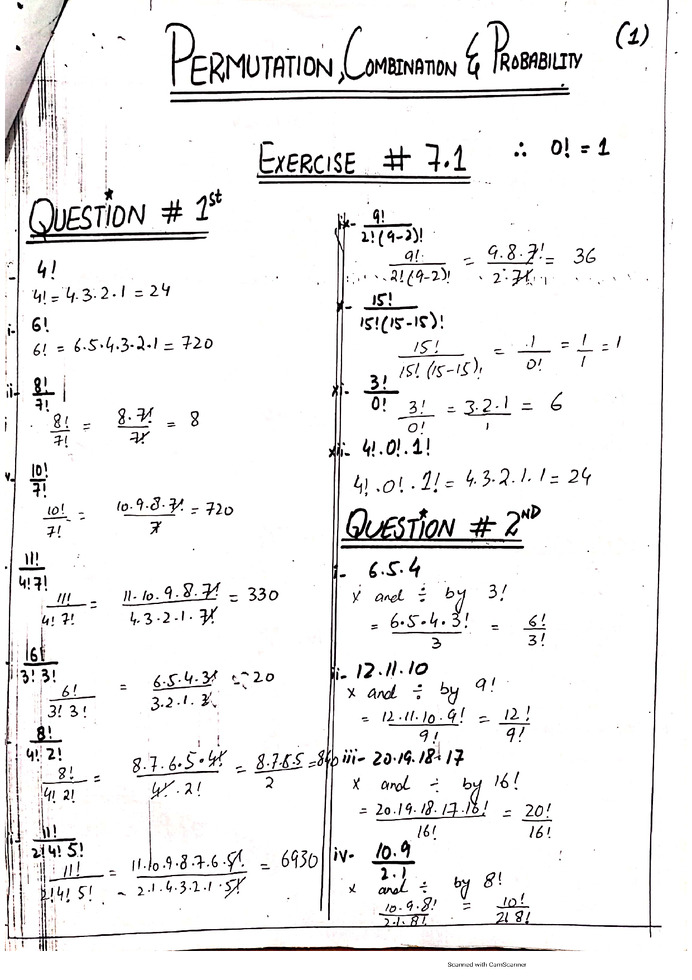 (1)
PERMUTATION, COMBINATION & PROBABILITY
EXERCISE # 7.1 ∴ 0! = 1
QUESTION # 1st
4!
4! = 4.3.2.1 = 24
i- 6!
6! = 6.5.4.3.2.1 = 720
ii- 8!/7!
8!/7! = 8.7!/7! = 8
v- 10!/7!
10!/7! = 10.9.8.7!/7 = 720
11!/4!7!
11!/4!7! = 11.10.9.8.7!/4.3.2.1.7! = 330
6!/3!3!
6!/3!3! = 6.5.4.3!/3.2.1.3 = 20
8!/4!2!
8!/4!2! = 8.7.6.5.4!/4!.2! = 8.7.6.5/2 = 840
11!/2!4!5!
11!/2!4!5! = 11.10.9.8.7.6.5!/2.1.4.3.2.1.5! = 6930
ix- 9!/2!(9-2)!
9!/2!(9-2)! = 9.8.7!/2.7! = 36
x- 15!/15!(15-15)!
15!/15!(15-15)! = 1/0! = 1/1 = 1
xi- 3!/0!
3!/0! = 3.2.1/1 = 6
xii- 4!.0!.1!
4!.0!.1! = 4.3.2.1.1 = 24
QUESTION # 2ND
i- 6.5.4
x and ÷ by 3!
= 6.5.4.3!/3 = 6!/3!
ii- 12.11.10
x and ÷ by 9!
= 12.11.10.9!/9! = 12!/9!
iii- 20.19.18.17
x and ÷ by 16!
= 20.19.18.17.16!/16! = 20!/16!
iv- 10.9/2.1
x and ÷ by 8!
10.9.8!/2.1.8! = 10!/2!8!
Scanned with CamScanner